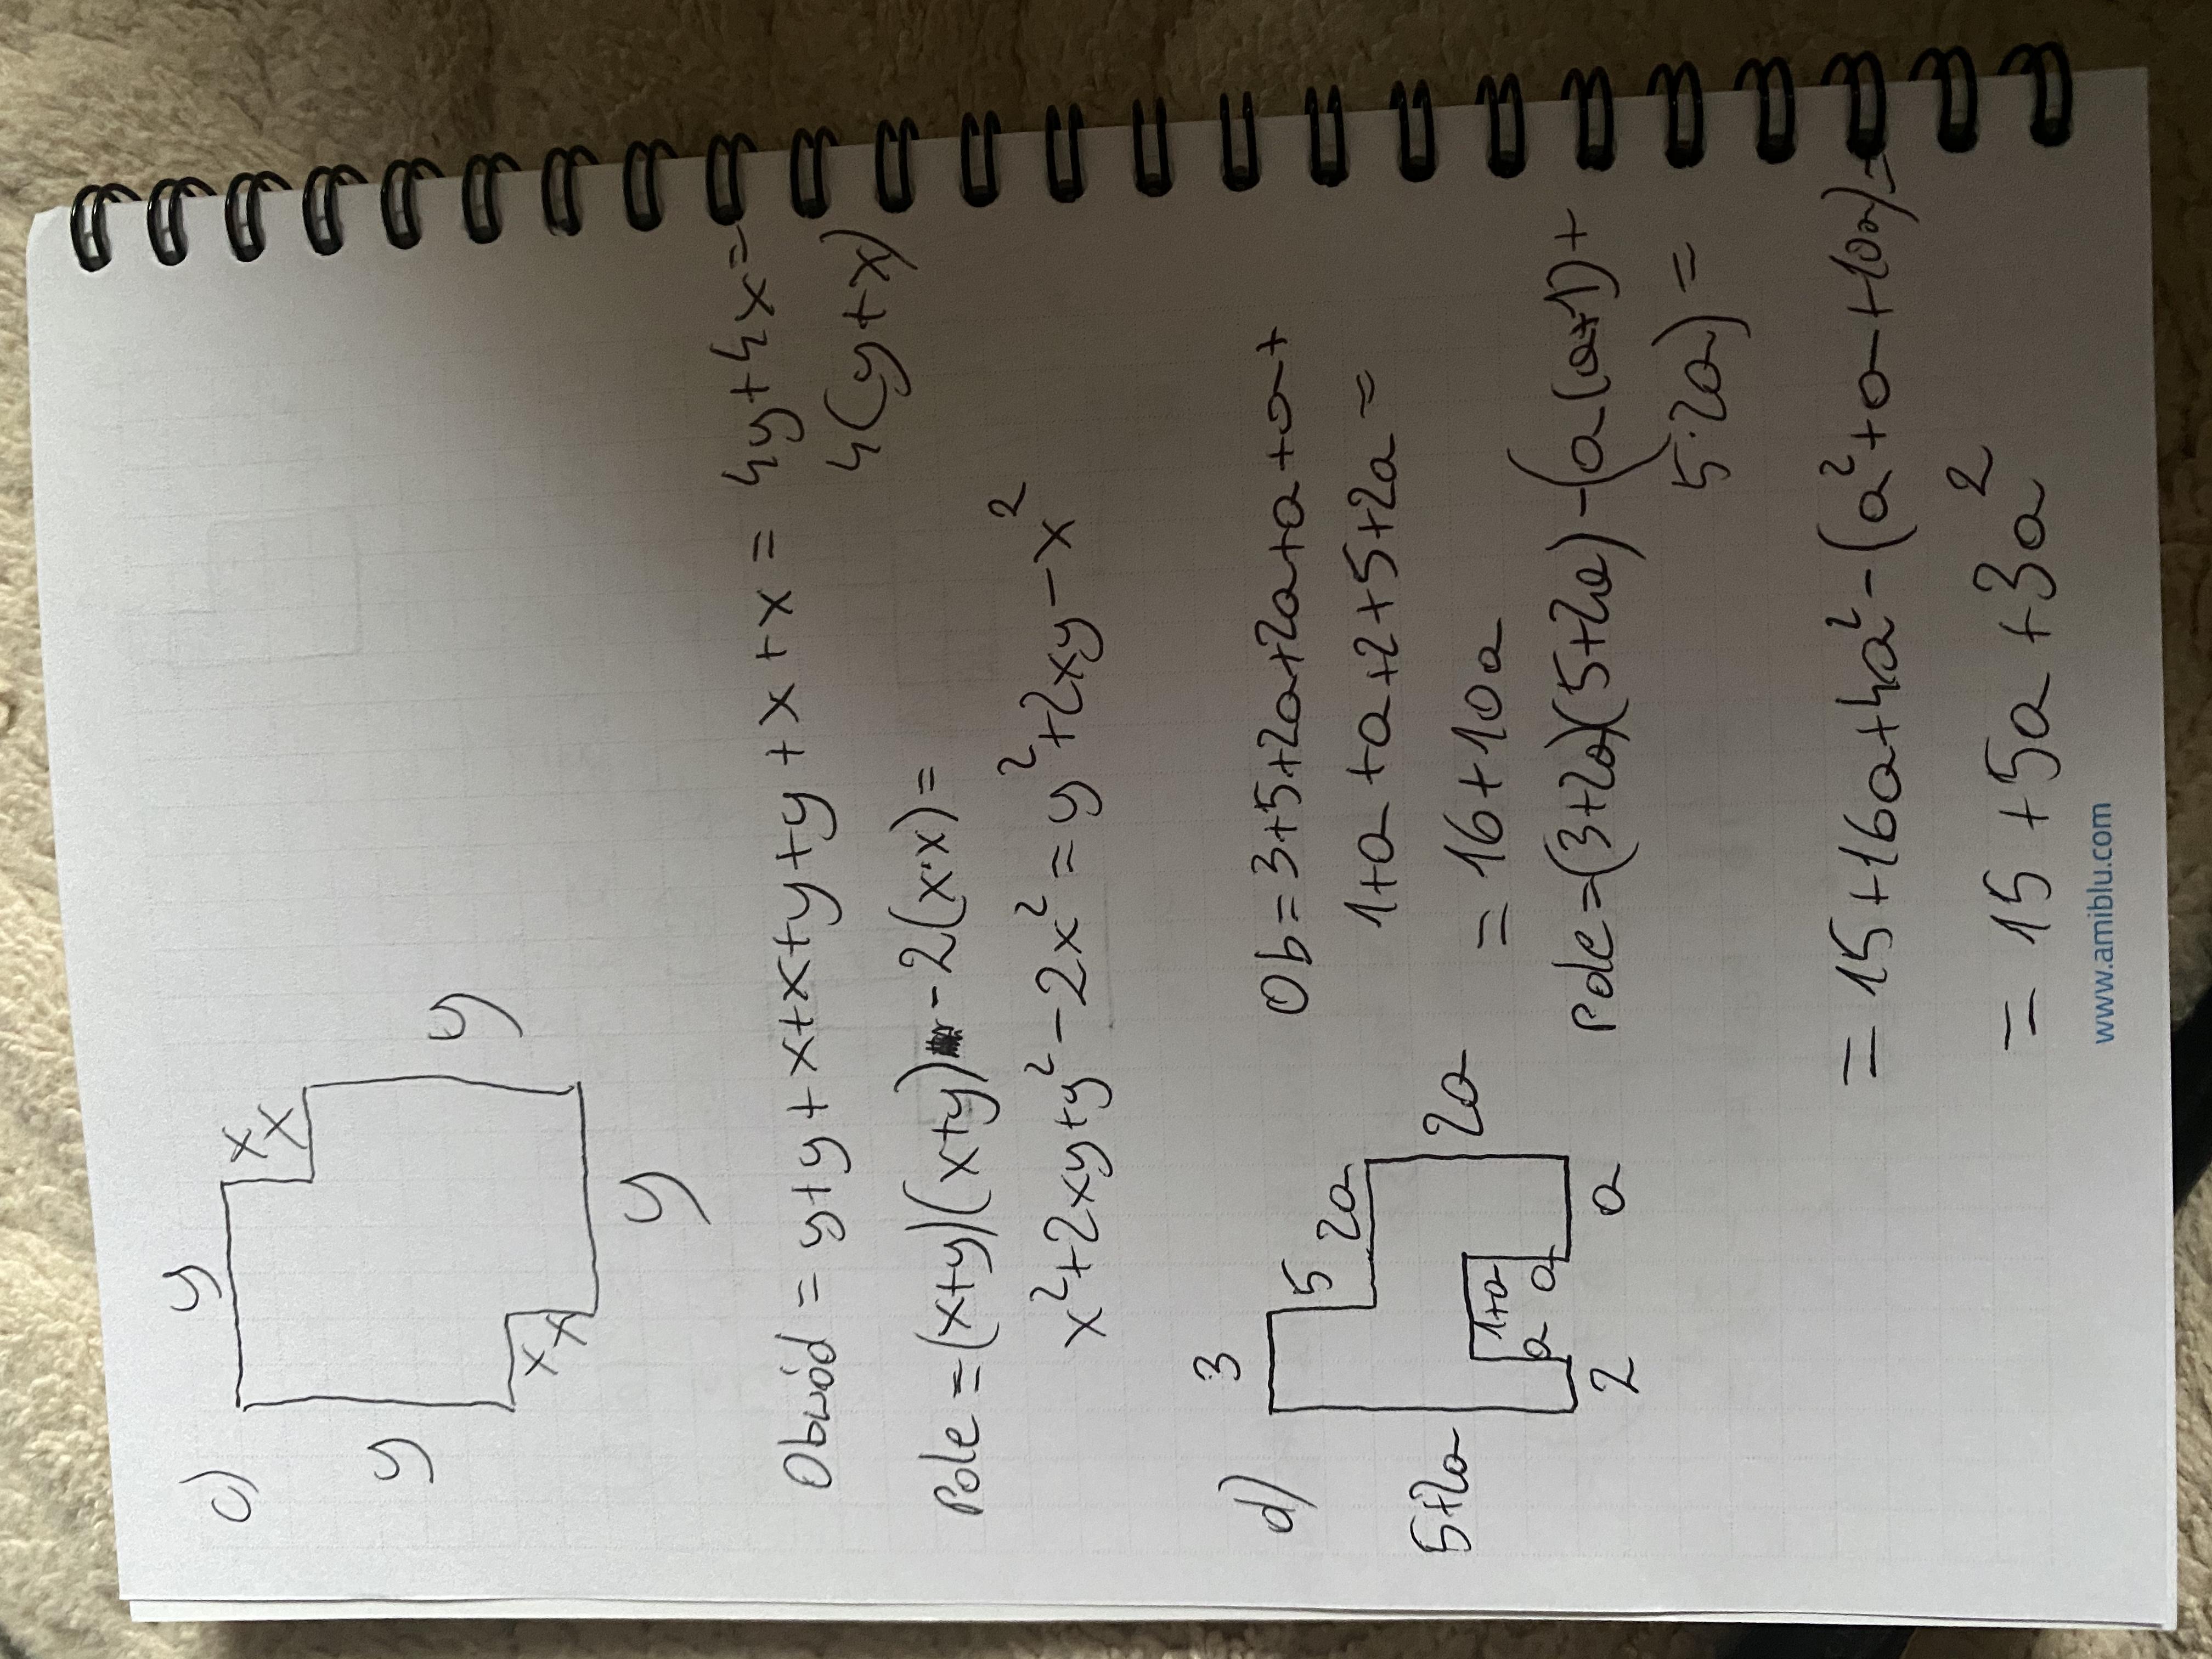 c)
y
x
x
y
y
x
x
y
Obwód = y+y+x+x+y+y+x+x = 4y+4x=
4(y+x)
Pole = (x+y)(x+y) -2(x·x) =
x²+2xy+y²-2x² = y²+2xy-x²
d)
3
5
2a
5+2a
2a
1+a
a
a
2
a
Ob=3+5+2a+2a+a+a+
1+a+a+2+5+2a=
=16+10a
Pole=(3+2a)(5+2a)-(a(a+1)+
5·2a)=
=15+16a+4a²-(a²+a+10a)=
=15+5a+3a²
www.amiblu.com